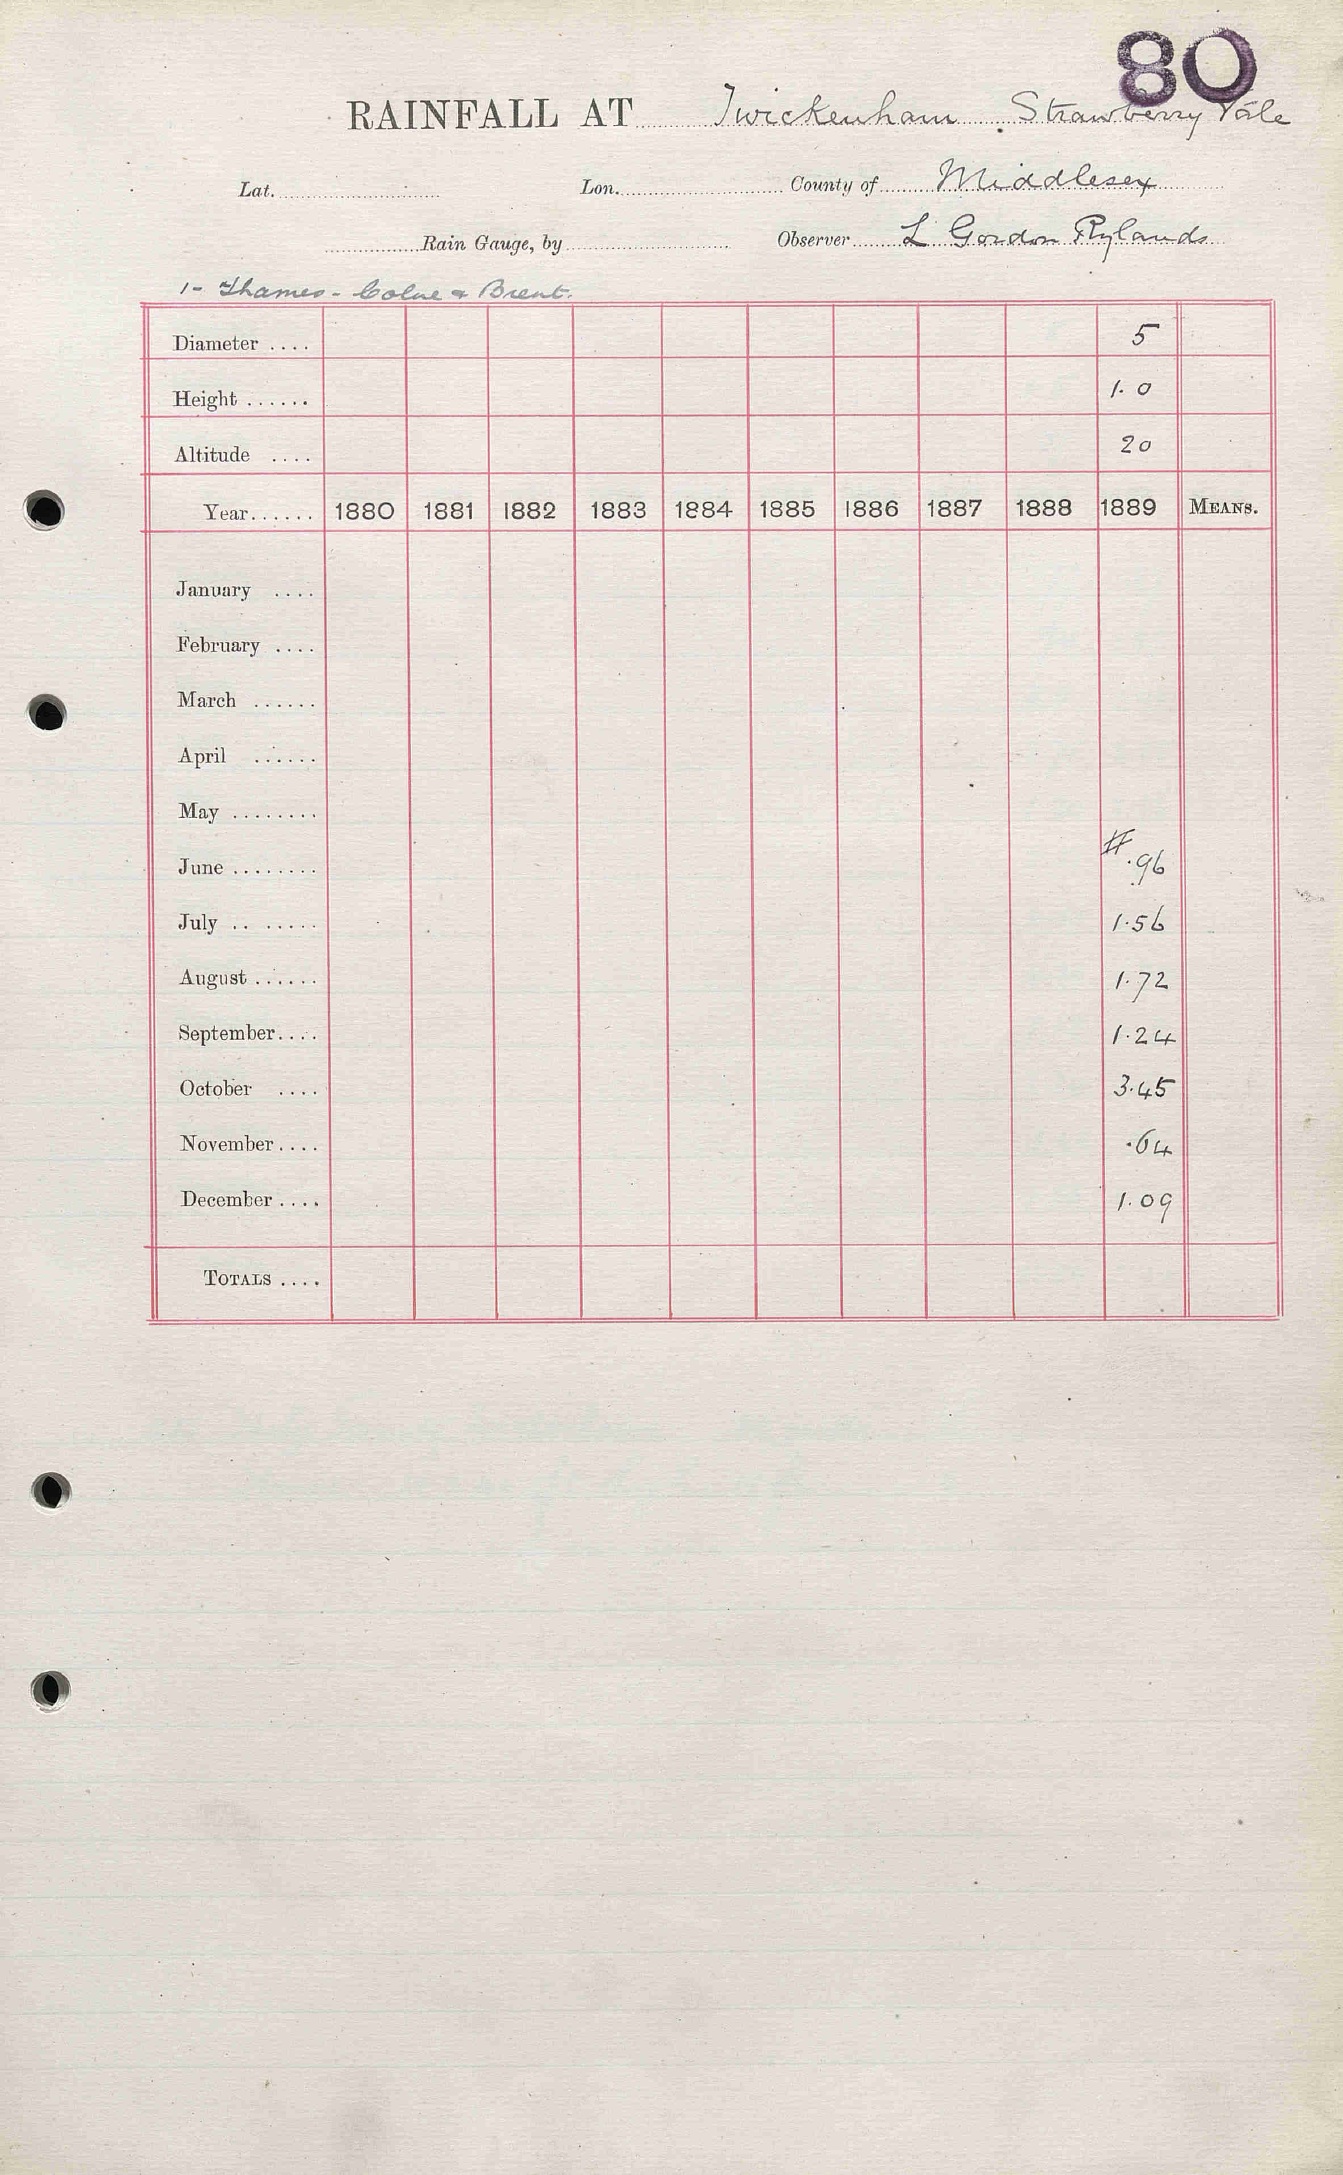 80
RAINFALL AT Twickenham. Strawberry Vale
Lat. Lon. County of Middlesex
Rain Gauge, by Observer L Gordon Rylands
1- Thames - Colne & Brent.
Diameter .... 5
Height ...... 1.0
Altitude .... 20
Year...... 1880 1881 1882 1883 1884 1885 1886 1887 1888 1889 MEANS.
January ....
February ....
March ......
April ......
May ........
June ........ # .96
July .. ..... 1.56
August ...... 1.72
September.... 1.24
October .... 3.45
November.... .64
December.... 1.09
TOTALS ....